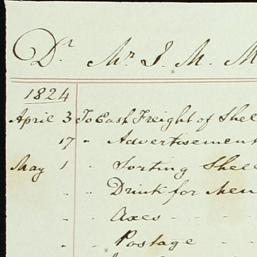 Dr Mr J. M. M
1824
April 3 To Cash Freight of Shel
17 " Advertisement
May 1 " Sorting Shel
" " Drink for Men
" " Axes - -
" " Postage -